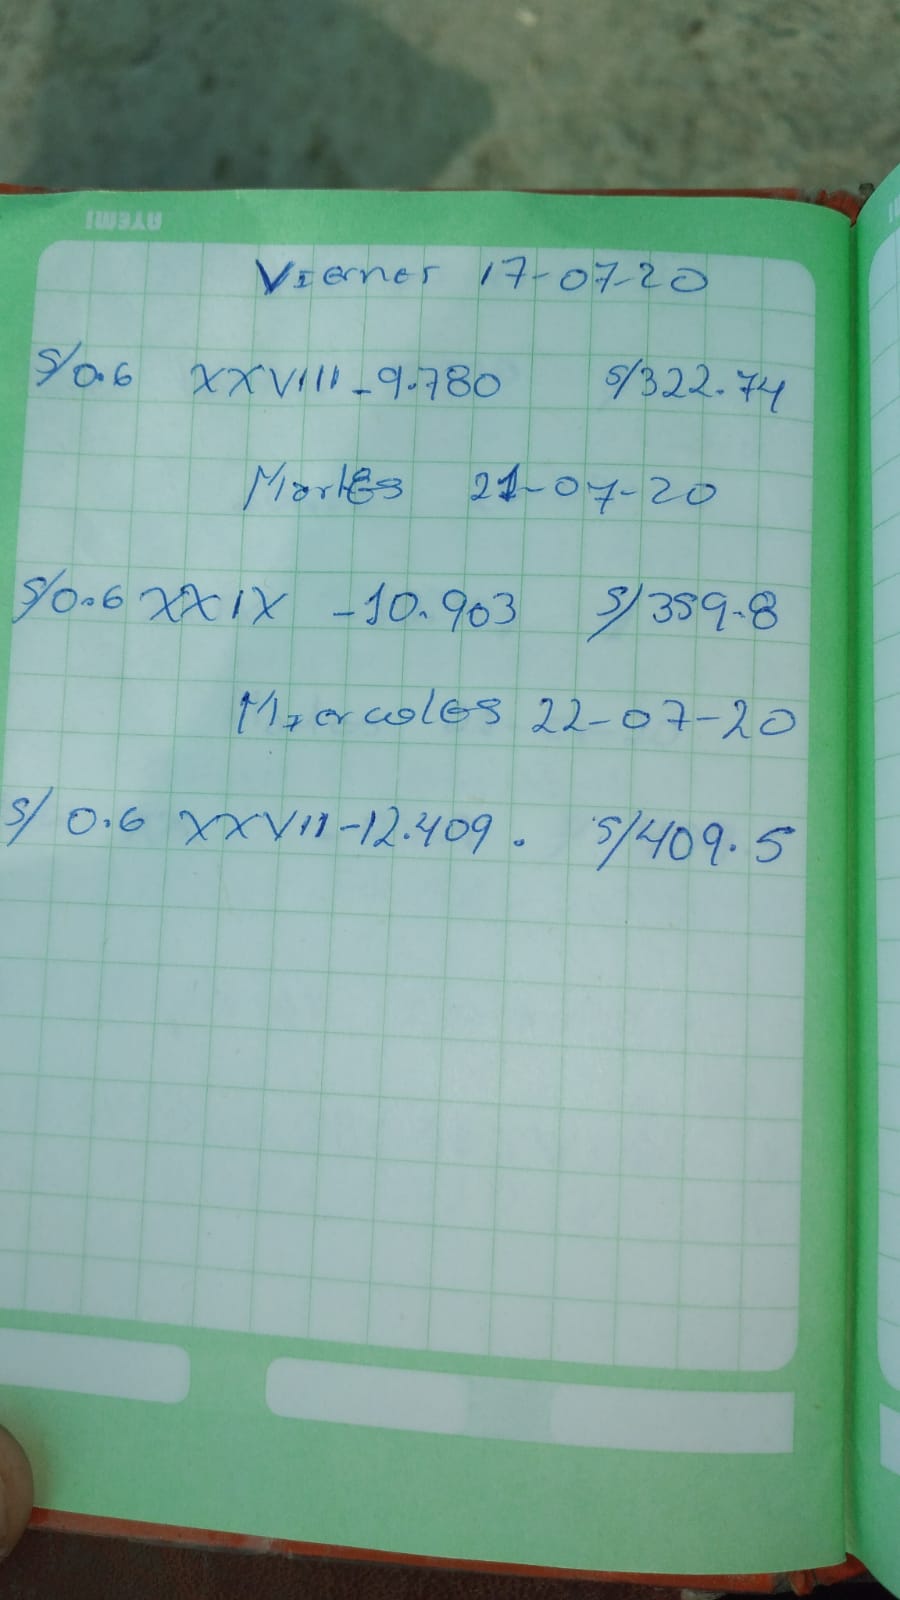 ATEMI
Viernes 17-07-20
S/0.6 XXVIII - 9.780 S/322.74
Martes 21-07-20
S/0.6 XXIX - 10.903 S/359.8
Miercoles 22-07-20
S/ 0.6 XXVII - 12.409. S/409.5